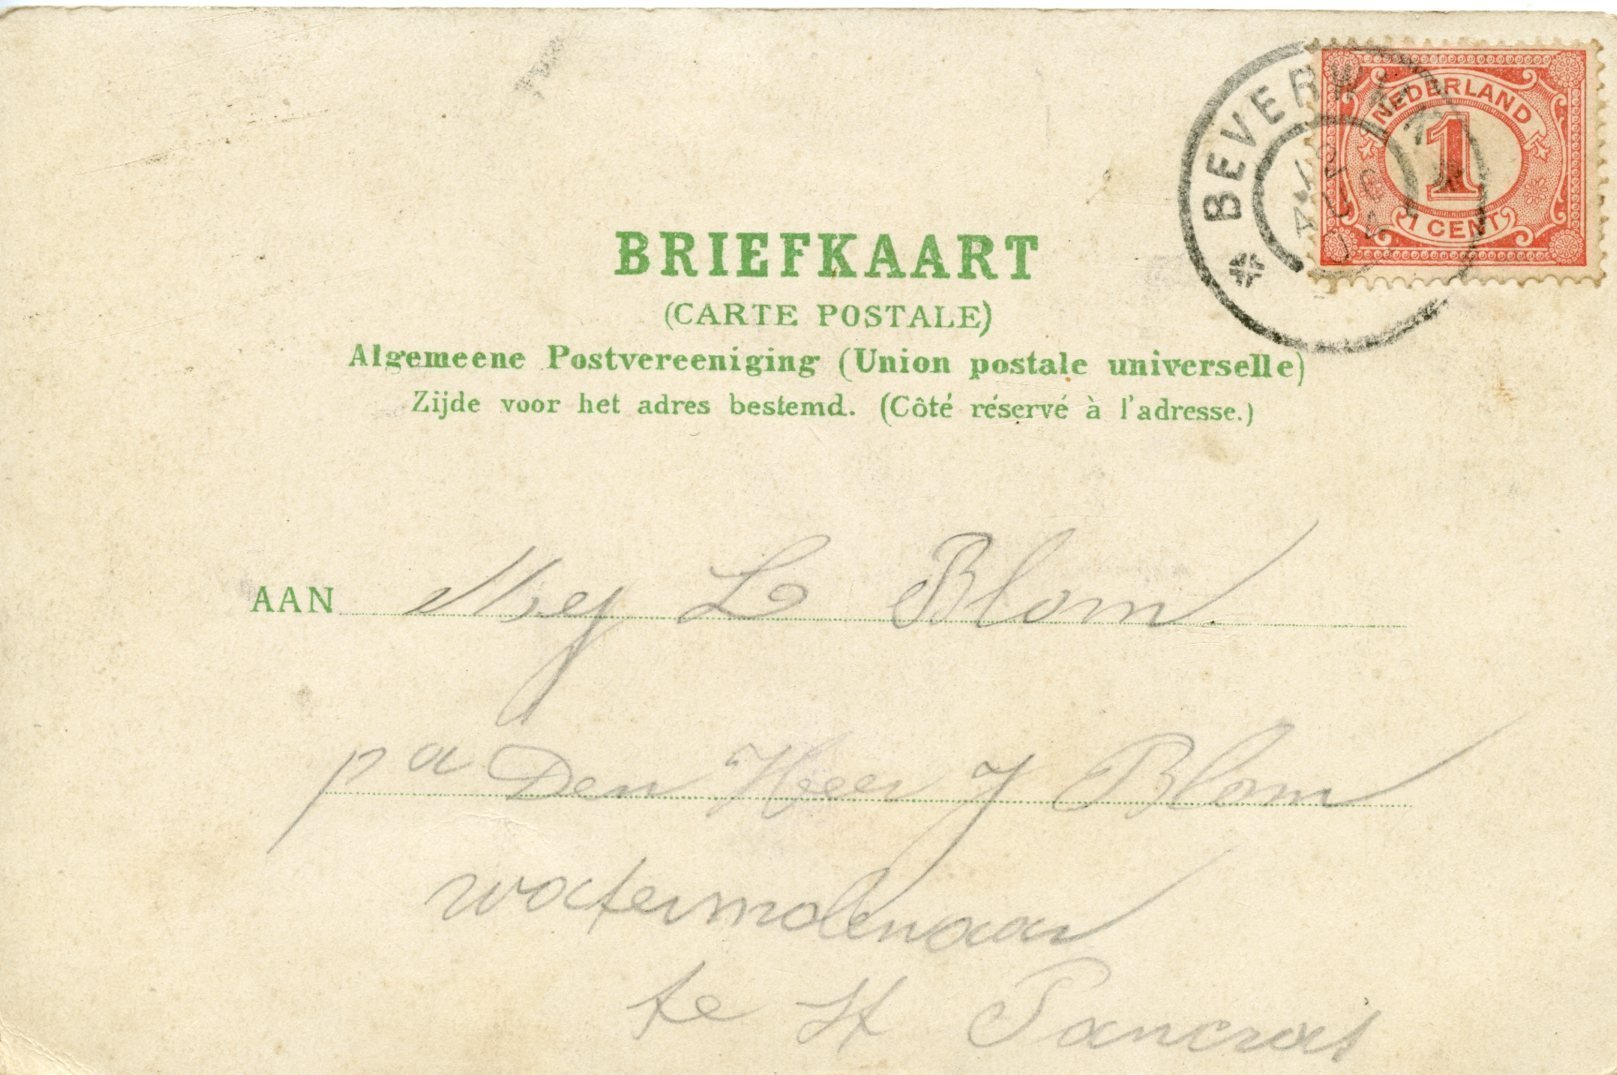 BEVERW
NEDERLAND
1
1 CENT
BRIEFKAART
(CARTE POSTALE)
Algemeene Postvereeniging (Union postale universelle)
Zijde voor het adres bestemd. (Côté réservé à l'adresse.)
AAN Mej L Blom
pa Den Heer J Blom
watermolenaar
te St Pancras